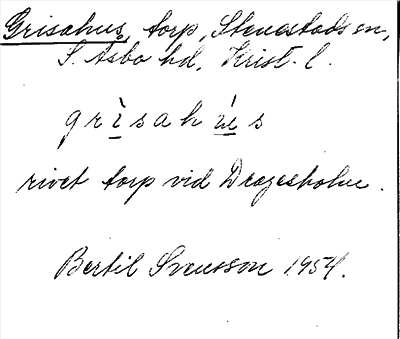 Grisahus, torp, Stenestads sn,
S. Åsbo hd, Krist. l.
grìsahùs
rivet torp vid Dragesholm.
Bertil Svensson 1954.